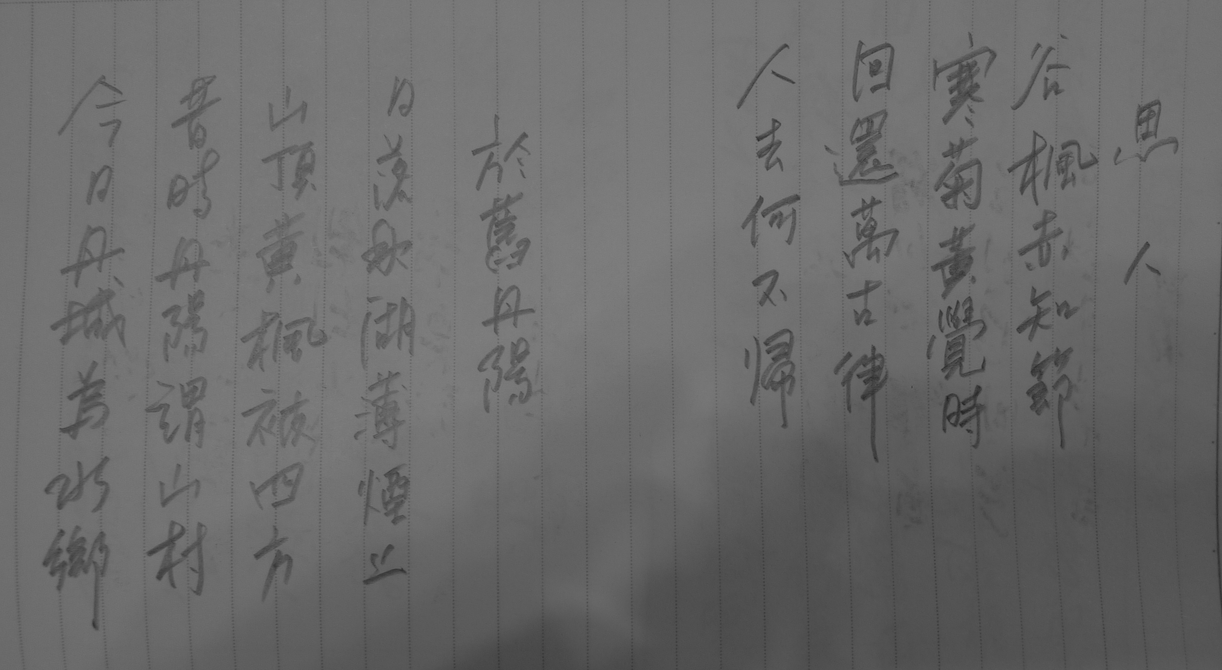 思人
谷楓赤知節
寒菊黃覺時
回還萬古律
人去何不歸
於舊丹陽
日落永湖薄煙上
山頂黃楓被四方
昔時丹陽謂山村
今日丹城為水鄉